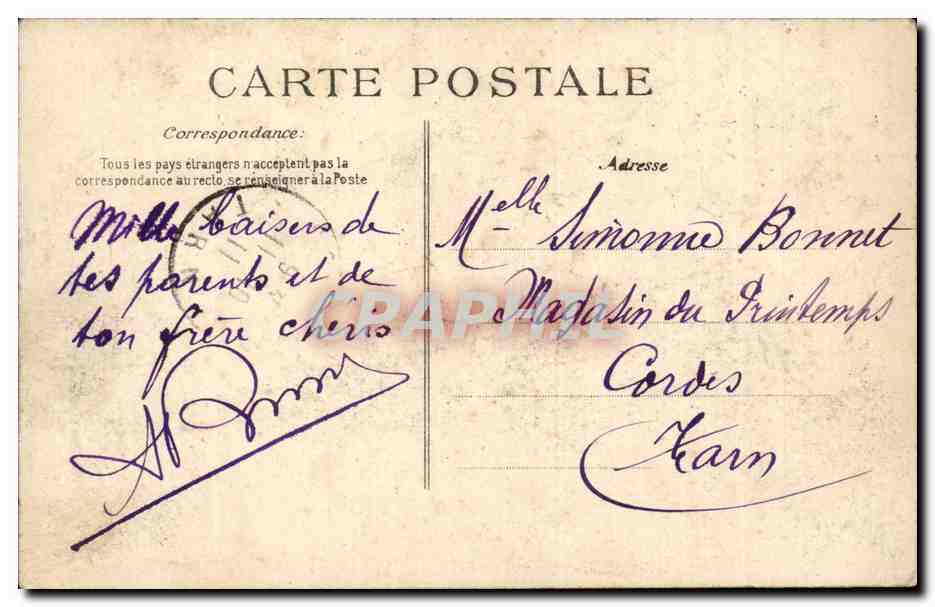 CARTE POSTALE
Correspondance:
Tous les pays étrangers n'acceptent pas la
correspondance au recto, se renseigner à la Poste
Mille baisers de
tes parents et de
ton frère cheris
Adresse
Melle Simonne Bonnet
Magasin du Printemps
Cordes
Tarn
TARN
CRAPHIL